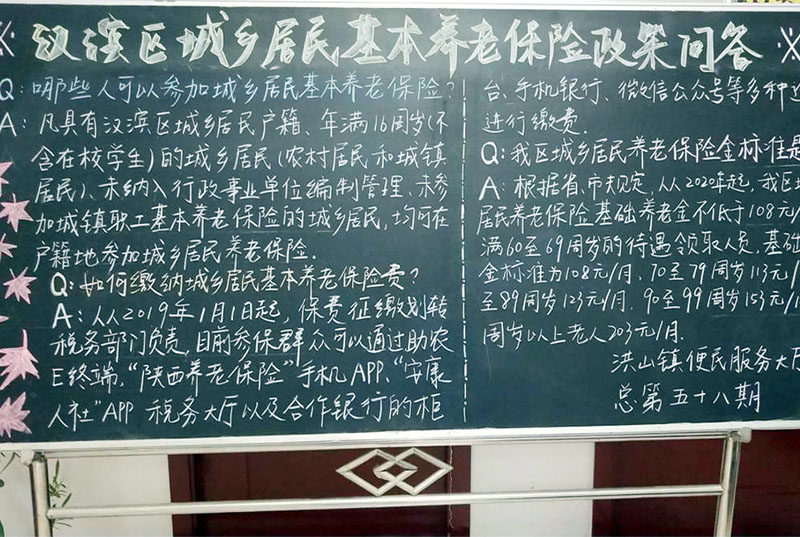 汉滨区城乡居民基本养老保险政策问答
Q：哪些人可以参加城乡居民基本养老保险？
A：凡具有汉滨区城乡居民户籍、年满16周岁(不
含在校学生)的城乡居民(农村居民和城镇
居民)、未纳入行政事业单位编制管理、未参
加城镇职工基本养老保险的城乡居民，均可在
户籍地参加城乡居民养老保险.
Q：如何缴纳城乡居民基本养老保险费？
A：从2019年1月1日起，保费征缴划转
税务部门负责，目前参保群众可以通过助农
E终端，“陕西养老保险”手机APP、“安康
人社”APP 税务大厅以及合作银行的柜
台、手机银行、微信公众号等多种
进行缴费.
Q：我区城乡居民养老保险金标准是
A：根据省、市规定，从2020年起，我区
居民养老保险基础养老金不低于108元/
满60至69周岁的待遇领取人员，基础
金标准为108元/月，70至79周岁113元/
至89周岁123元/月. 90至99周岁153元/
周岁以上老人203元/月.
洪山镇便民服务大厅
总第五十八期